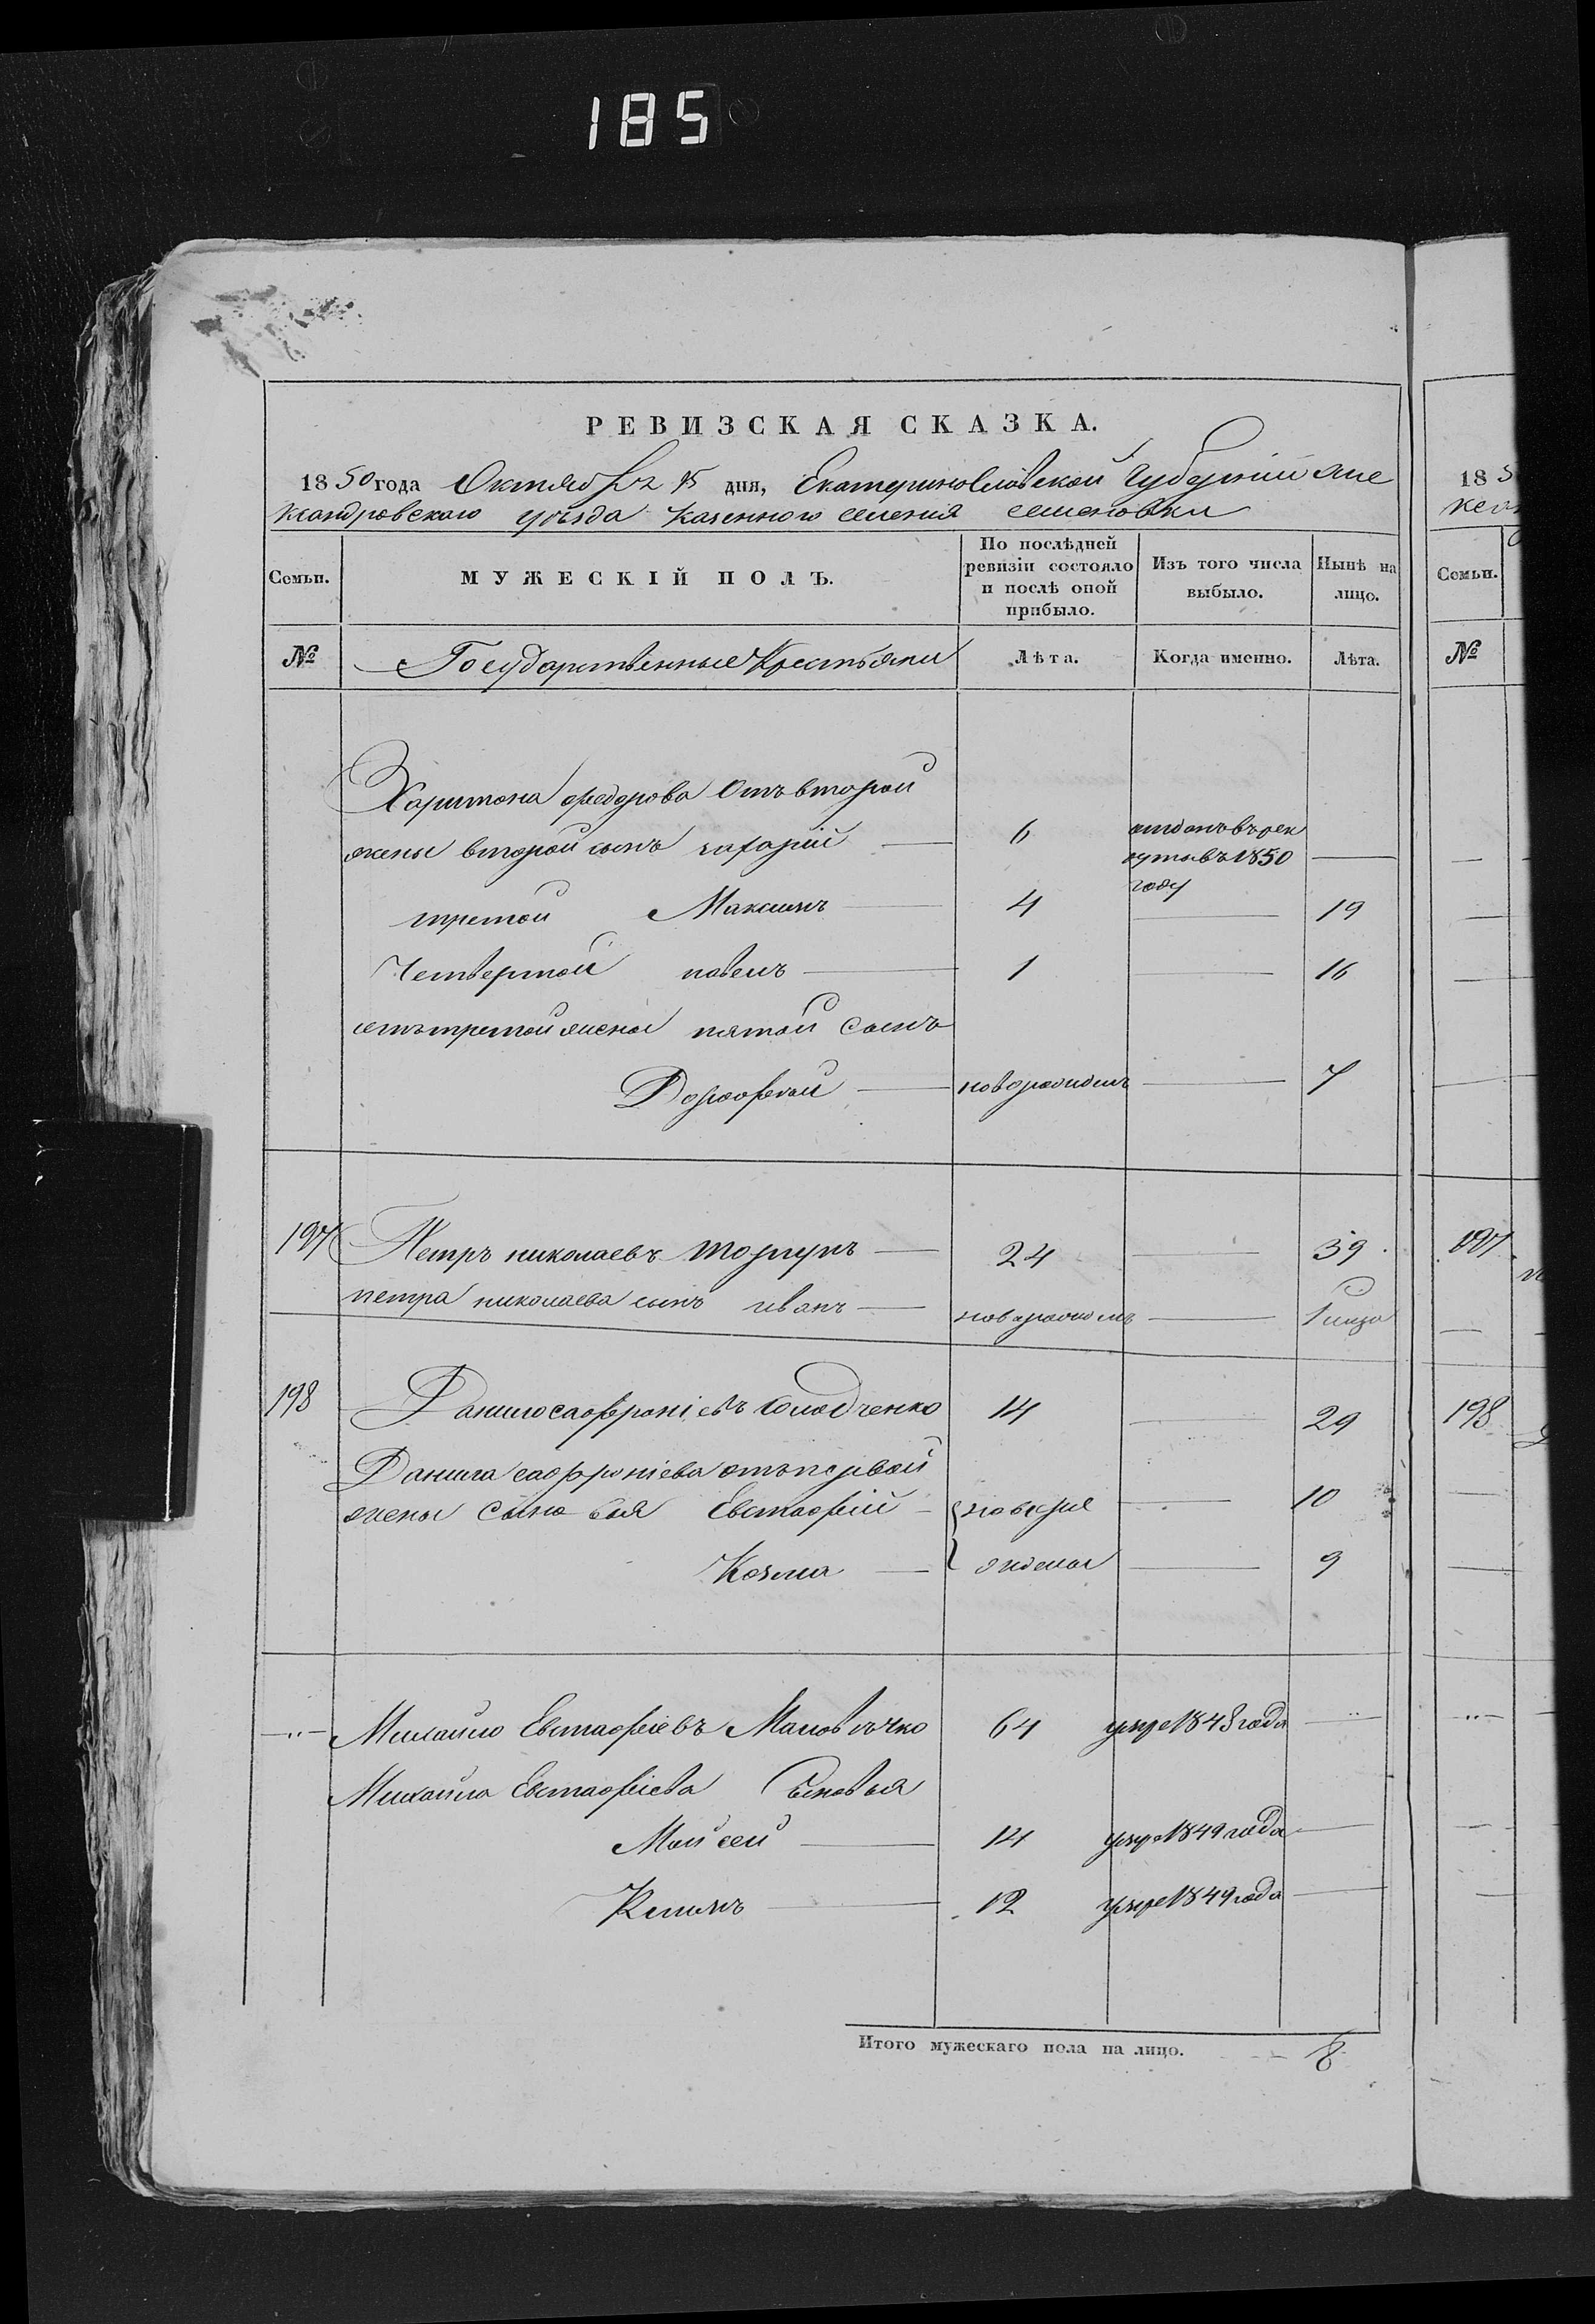 185
РЕВИЗСКАЯ СКАЗКА.
1850 года Октября 15 дня, Екатеринославской Губерніи Але
ксандровскаго уѣзда Казенного селенія семеновки
Семьи.
МУЖЕСКІЙ ПОЛЪ.
По послѣдней ревизіи состояло и послѣ оной прибыло.
Изъ того числа выбыло.
Нынѣ на лицо.
№ Государственные Крестьяни Лѣта. Когда именно. Лѣта.
Харитона федорова Отъ второй
жены второй сынъ захарій — 6 отданъ въ рек
руты въ 1850 —
году
третой Максимъ — 4 — 19
Четвертой павелъ — 1 — 16
отъ третой жены пятой Сынъ
Дорофей — новорожденъ — 7
197 Петръ николаевъ — 24 — 39
петра николаева сынъ иванъ — новорожденъ — 1
198 Данило сафроніевъ 14 — 29
Данила сафроніева отъ первой
жены Сыновья Евстафій — новоро — 10
Козма — жденые — 9
—"— Михайло Евстафіевъ 64 умре 1848 года —
Михайла Евстафіева Сыновья
Мойсей — 14 умре 1849 года —
Климъ — 12 умре 1849 года —
Итого мужескаго пола на лицо. — 8
185
Семьи.
№
197
198
—"—